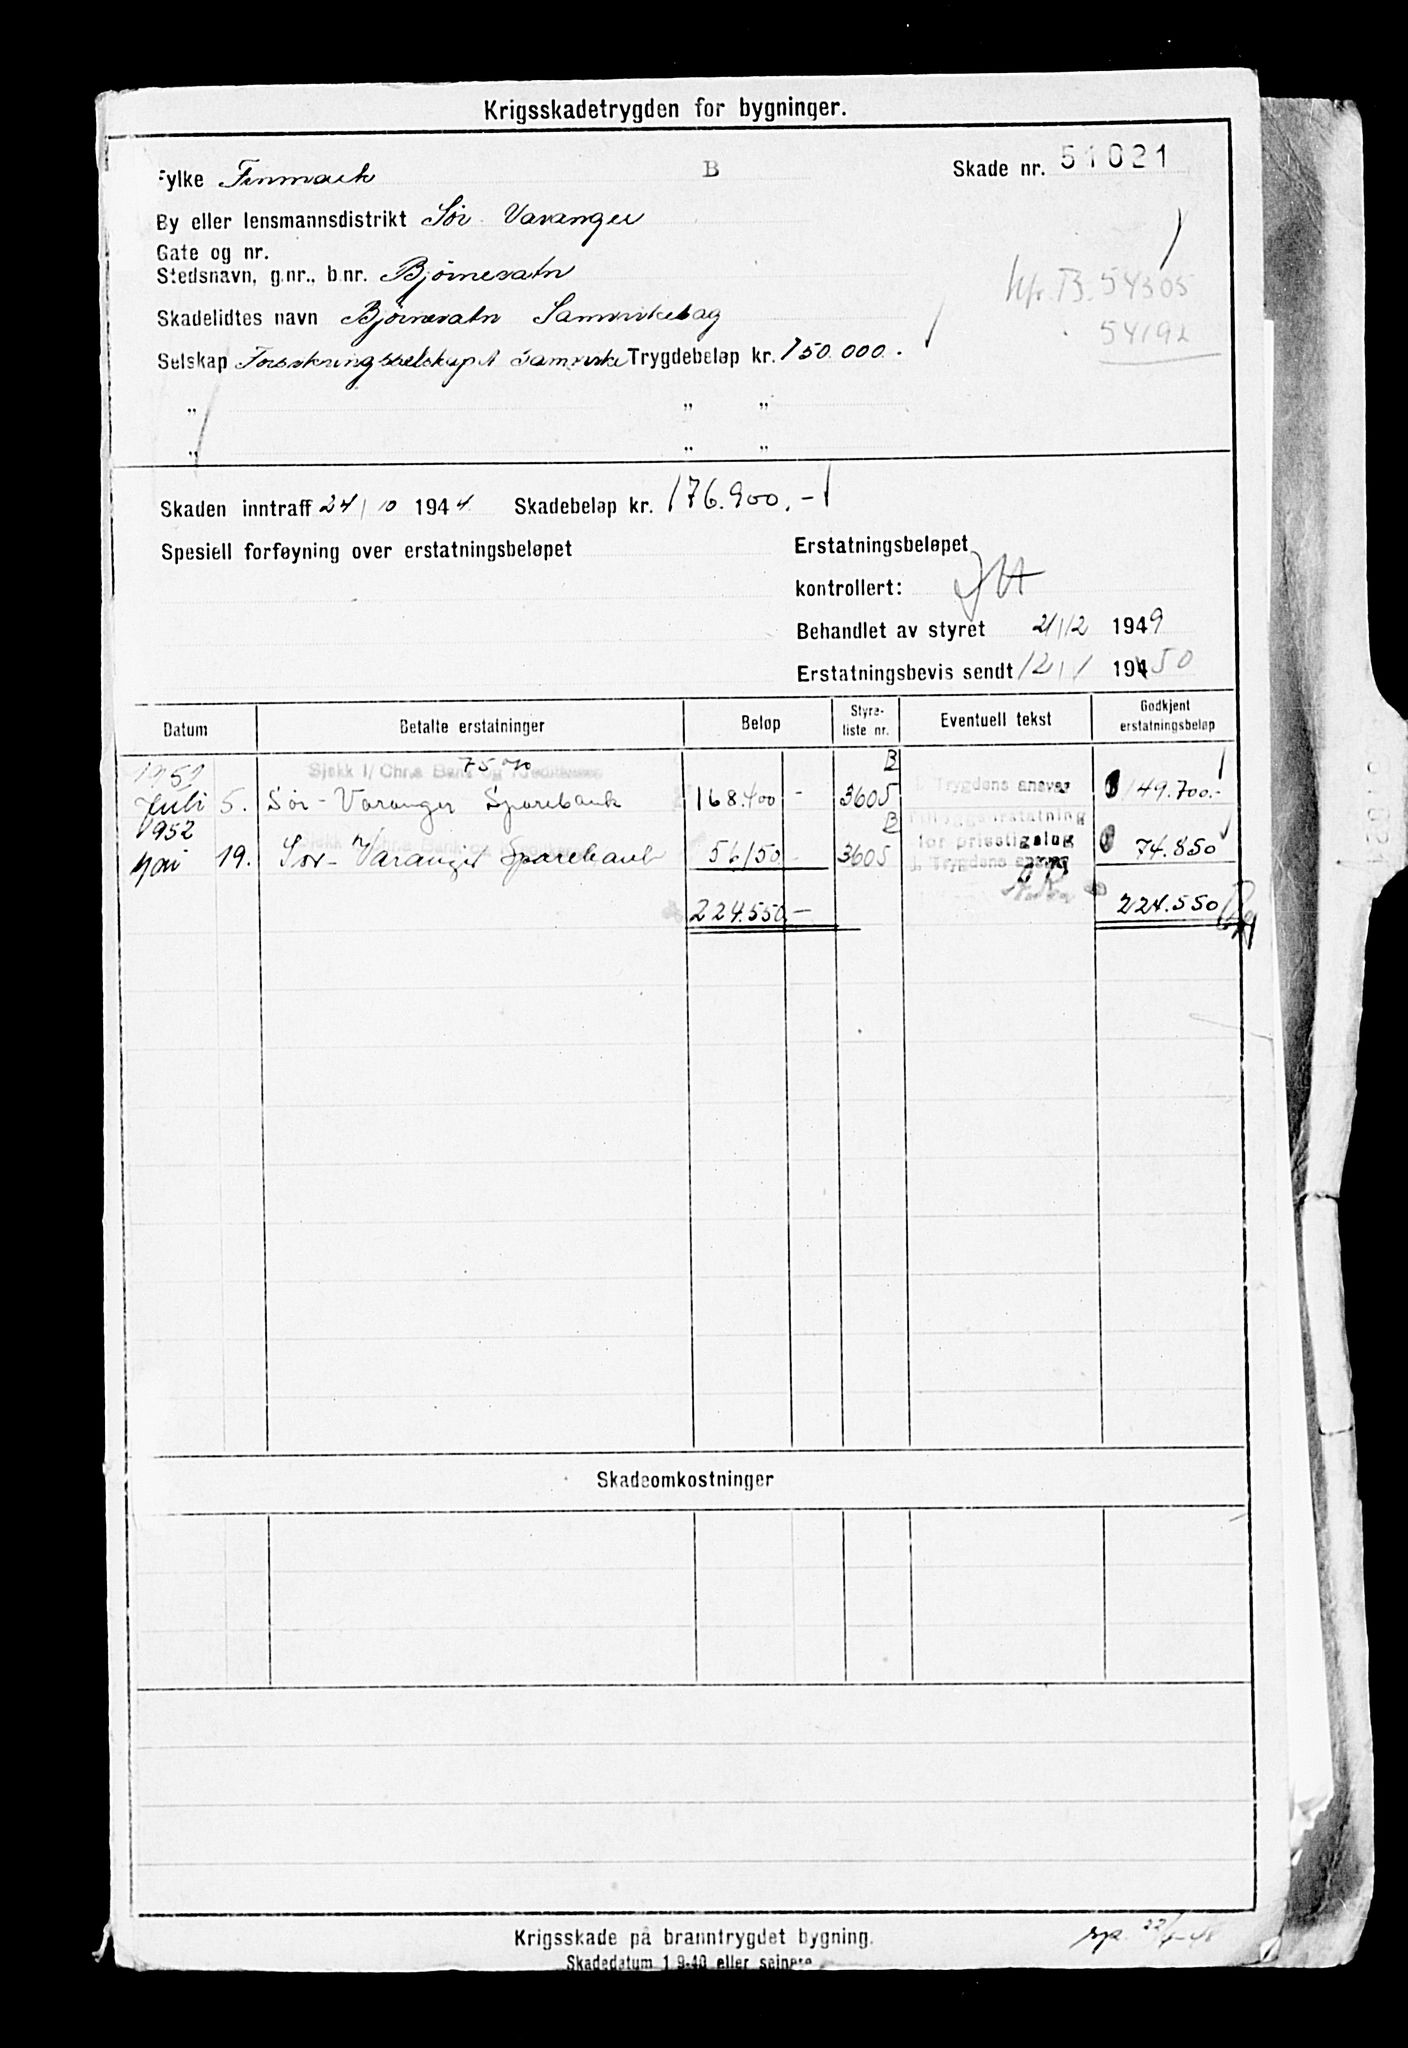 Krigsskadetrygden for bygninger.
Fylke Finmark B Skade nr. 51021
By eller lensmannsdistrikt Sør Varanger
Gate og nr.
Stedsnavn, g.nr., b.nr. Bjørnevatn
B. 54305
54192
Skadelidtes navn Bjørnevatn Samvirkelag
Selskap Forsikringsselskapet Samvirke Trygdebeløp kr. 150.000.-
" " "
" " "
Skaden inntraff 24/10 1944 Skadebeløp kr. 176.900.-
Spesiell forføyning over erstatningsbeløpet Erstatningsbeløpet
kontrollert:
Behandlet av styret 21/12 1949
Erstatningsbevis sendt 12/1 1950
Datum Betalte erstatninger Beløp Styre-liste nr. Eventuell tekst Godkjent erstatningsbeløp
1951 Sjekk 1/ Chra Bank og Kreditkasse 75 % B
Juli 5. Sør-Varanger Sparebank 168.400 - 3605 Trygdens ansvar 149.700.-
1952 B Tilleggserstatning
19. Sør-Varanger Sparebank 56150 - 3605 for prisstigning 74.850
Trygdens ansvar
224.550,- 224.550
Skadeomkostninger
Krigsskade på branntrygdet bygning.
Skadedatum 1.9.40 eller seinere